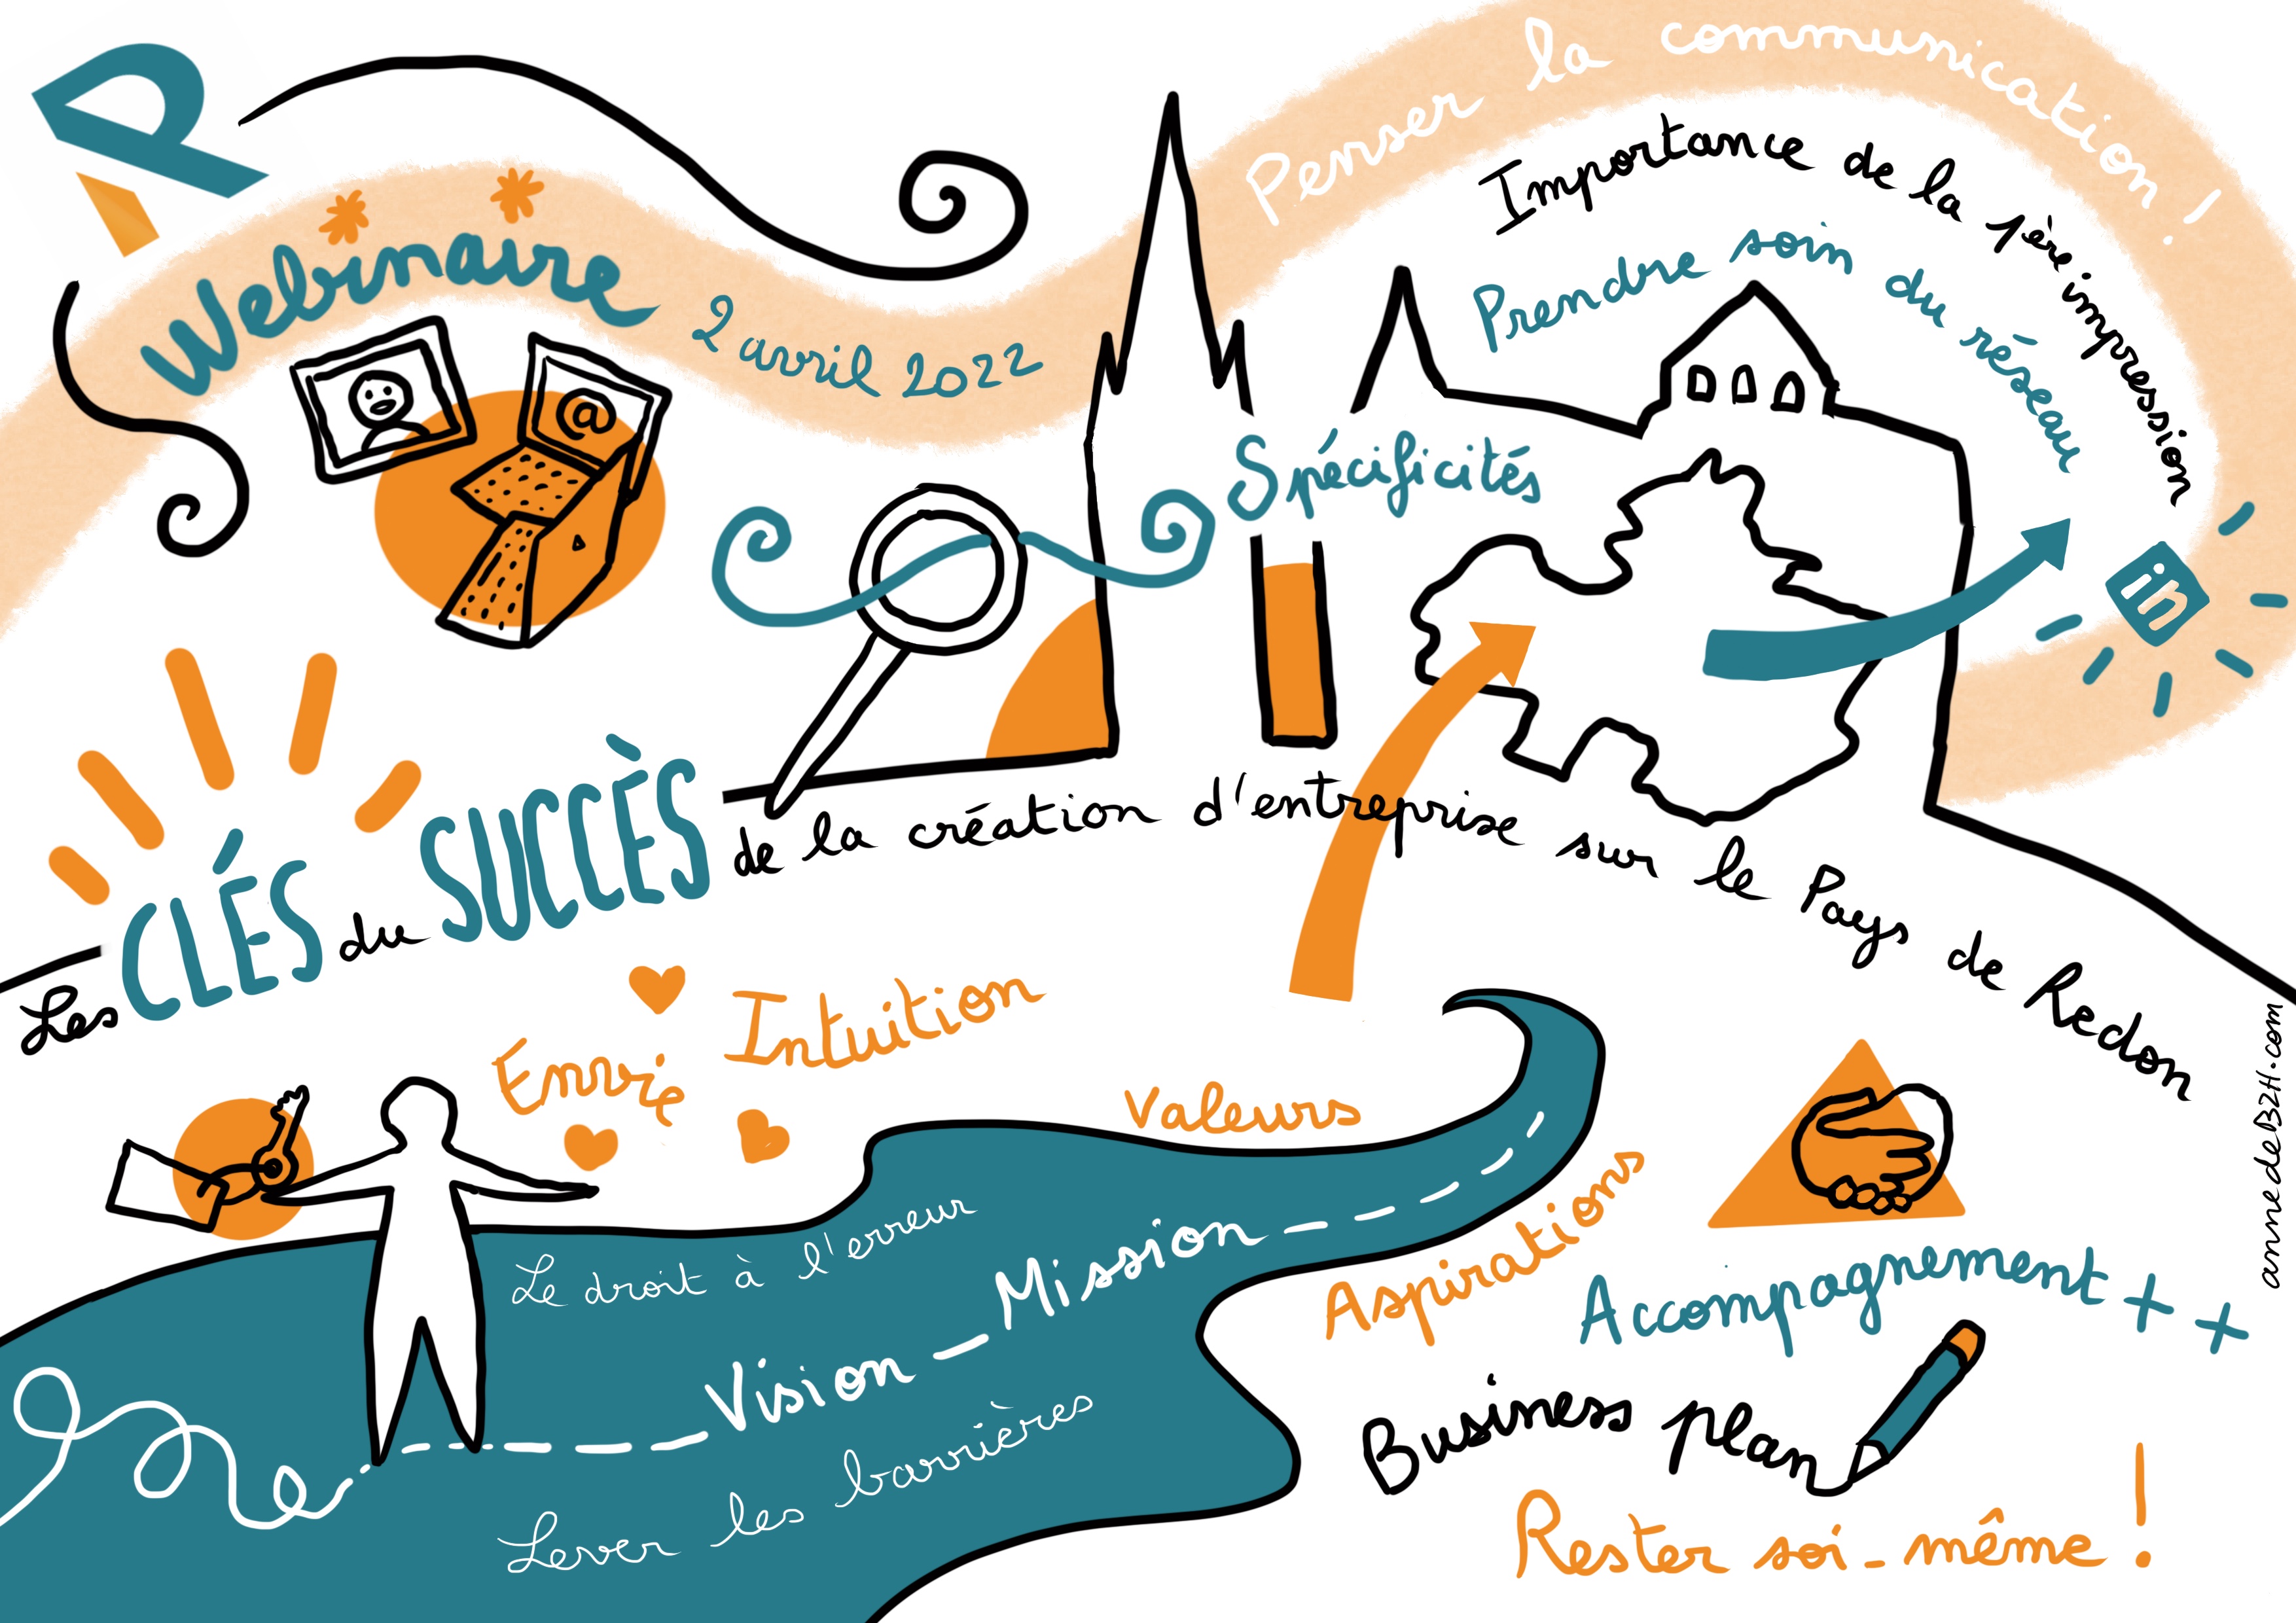 Webinaire
2 avril 2022
@
Penser la communication !
Importance de la 1ère impression
Prendre soin du réseau
in
Spécificités
Les CLÉS du SUCCÈS de la création d'entreprise sur le Pays de Redon
Envie
Intuition
Valeurs
Aspirations
Le droit à l'erreur
Vision – Mission
Lever les barrières
Accompagnement + +
Business plan
Rester soi-même !
annedeBZH.com